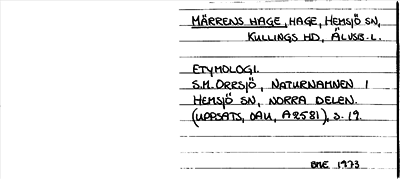 MÄRRENS HAGE, HAGE, HEMSJÖ SN,
KULLINGS HD, ÄLVSB. L.
ETYMOLOGI.
S.M. ORRSJÖ, NATURNAMNEN I
HEMSJÖ SN, NORRA DELEN.
(UPPSATS, DAU, A2581), S. 19.
BME 1973